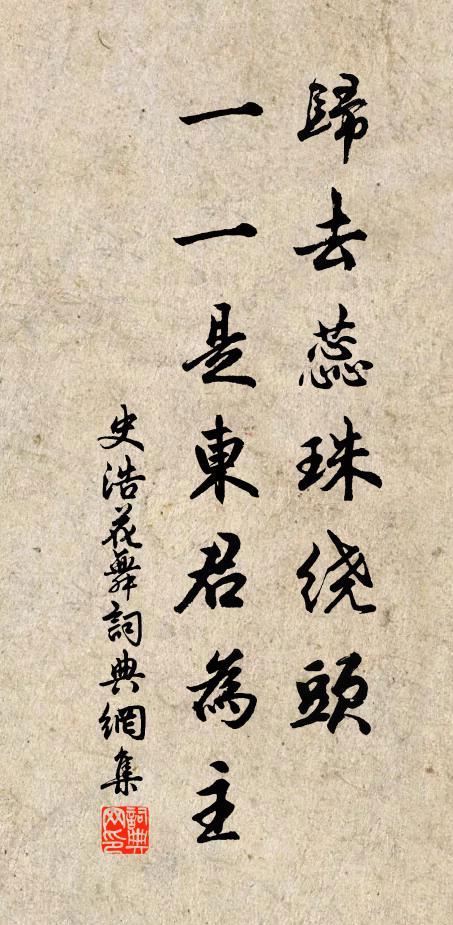 歸去蕊珠绕頭
一一是東君為主
史浩花舞詞典網集
詞典網印